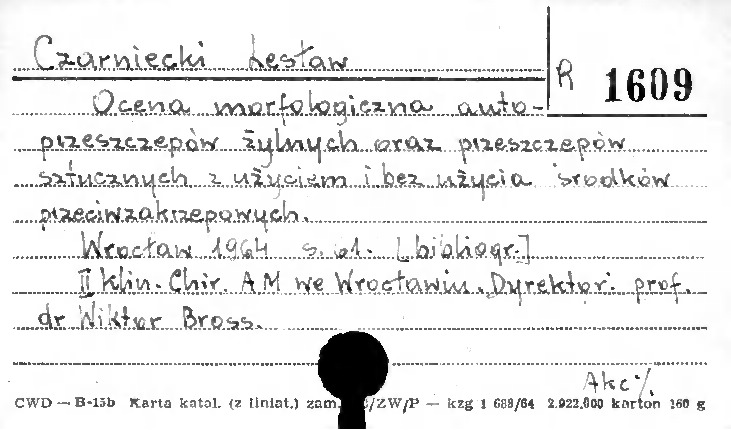 Czarniecki Lesław
R 1609
Ocena morfologiczna auto-
przeszczepów żylnych oraz przeszczepów
sztucznych z użyciem i bez użycia środków
przeciwzakrzepowych.
Wrocław 1964 s. 61. [bibliogr.]
II Klin. Chir. AM we Wrocławiu. Dyrektor: prof.
dr Wiktor Bross.
Akc%
CWD — B-15b Karta katal. (z liniat.) zam. /ZW/P — kzg 1 688/64 2.922.000 karton 160 g